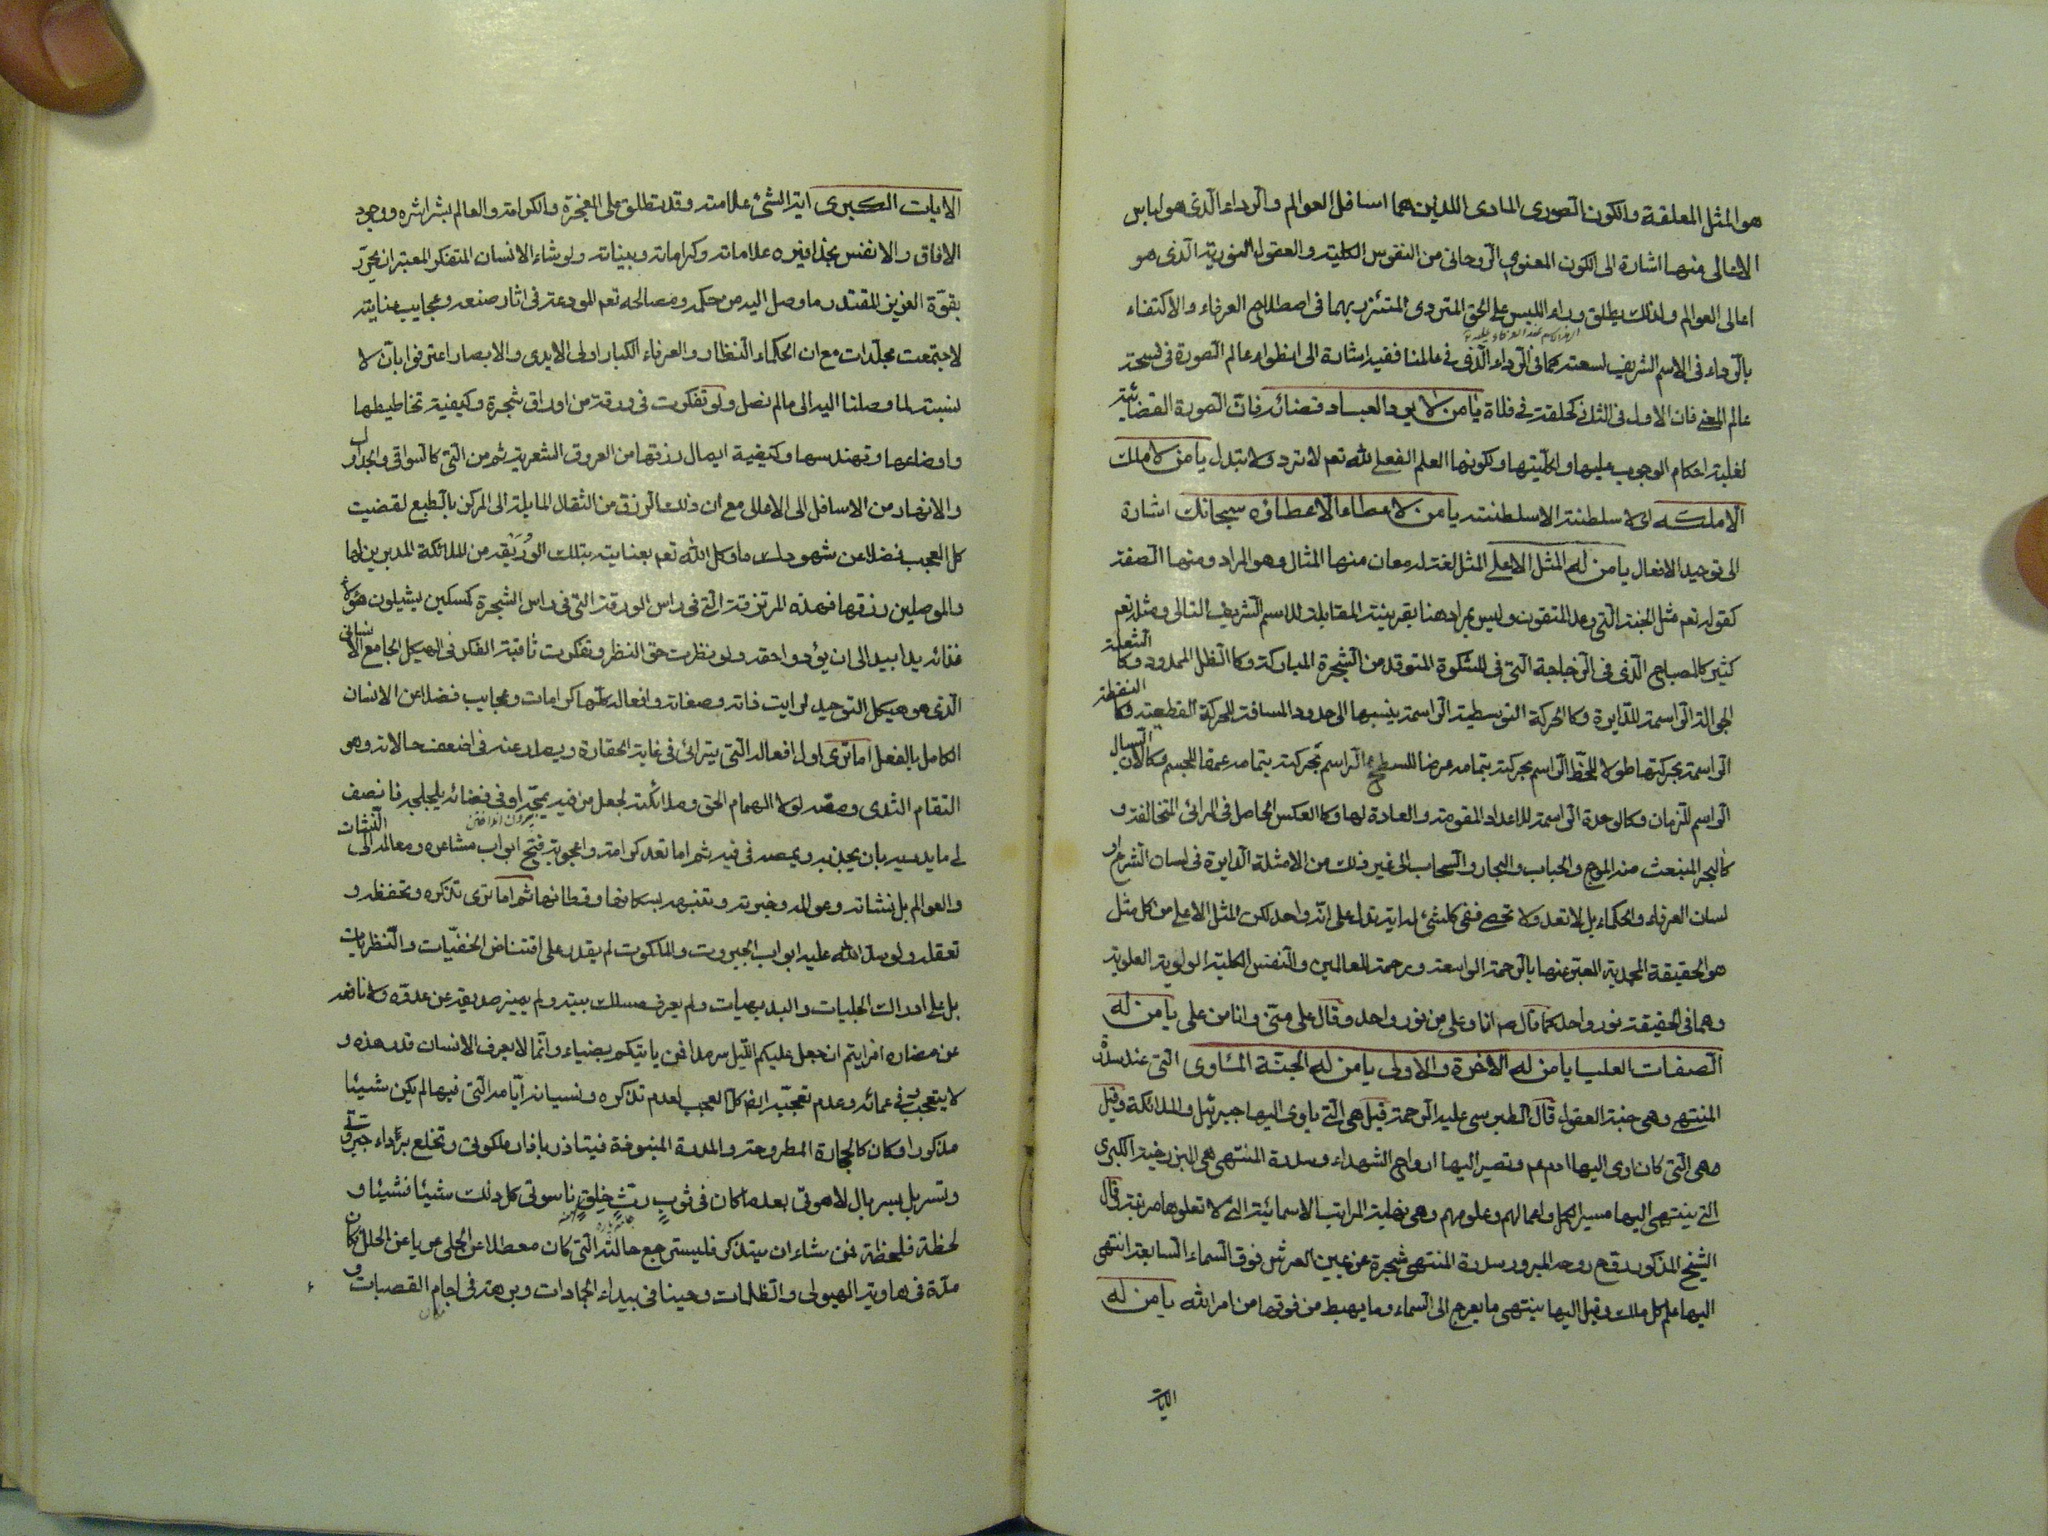 هو المثل المعلقة والكون الصوري المادي اللذين هما اسافل العوالم والرداء الذي هو لباس
الاعالى منها اشارة الى الكون المعنوي الروحاني من النفوس الكلية والعقول النورية الذي هو
اعالى العوالم ولذلك يطلق وراء اللبس على الحق المتردى المتئزر بهما في اصطلاح العرفاء والاكتفاء
بالرداء في الاسم الشريف لسعته كما في الرداء الذي في عالمنا ففيه اشارة الى انطواء عالم الصورة في فسحة
عالم المعنى فان الاول في الثاني كحلقة في فلاة يا من لا يرد العباد قضائه فان الصورة القضائية
لغلبة احكام الوجوب عليها وكليتها وكونها العلم الفعلى لله تعم لا ترد ولا تبدل يا من لا ملك
الا ملكه اى لا سلطنة الا سلطنته يا من لا عطاء الا عطاؤه سبحانك اشارة
الى توحيد الافعال يا من له المثل الاعلى المثل لغة له معان منها المثال وهو المراد ومنها الصفة
كقوله تعم مثل الجنة التي وعد المتقون وليس بمراد هنا بقرينة المقابلة للاسم الشريف التالى ومثله تعم
كثير كالمصباح الذي في الزجاجة التي في المشكوة المتوقد من الشجرة المباركة وكالظل الممدود وكالشعلة
الجوالة الراسمة للدايرة وكالحركة التوسطية الراسمة بنسبها الى حدود المسافة للحركة القطعية وكالنقطة
الراسمة بحركتها طولا للخط الراسم بحركته بتمامه عرضا للسطح الراسم بحركته بتمامه عمقا للجسم وكالآن السيال
الراسم للزمان وكالوحدة الراسمة للاعداد المقومة والعادة لها وكالعكس الحاصل في المرائى المتخالفة و
كالبحر المنبعث منه الموج والحباب والبخار والسحاب الى غير ذلك من الامثلة الدايرة في لسان الشرع او
لسان العرفاء والحكماء بل لا تعد ولا تحصى ففي كل شئ له اية تدل على انه واحد لكن المثل الاعلى من كل مثل
هو الحقيقة المحمدية المعبر عنها بالرحمة الواسعة ورحمة للعالمين والنفس الكلية الولوية العلوية
وهما في الحقيقة نور واحد كما قال صم انا وعلى من نور واحد وقال على منى وانا من على يا من له
الصفات العليا يا من له الاخرة والاولى يا من له الجنة المأوى التي عند سدرة
المنتهى وهي جنة العقول قال الطبرسى عليه الرحمة قيل هي التي ياوى اليها جبرئيل والملائكة وقيل
هي التي كان اوى اليها ادم عم وتصير اليها ارواح الشهداء وسدرة المنتهى هي البرزخية الكبرى
التي ينتهى اليها مسير الكل واعمالهم وعلومهم وهي نهاية المراتب الاسمائية التي لا تعلوها مرتبة قال
الشيخ المذكور قدس روحه المبرور سدرة المنتهى شجرة عن يمين العرش فوق السماء السابعة انتهى
اليها علم كل ملك وقيل اليها ينتهى ما يعرج الى السماء وما يهبط من فوقها من امر الله يا من له
الايات
الايات الكبرى اية الشئ علامته وقد تطلق على المعجزة والكرامة والعالم بشراشره ووجود
الافاق والانفس بحذافيره علاماته وكراماته وبيناته ولو شاء الانسان المتفكر المعتبر ان يحرر
بقوة العزيز المقتدر ما وصل اليه من حكمه ومصالحه تعم المودعة في اثار صنعه وعجايب عنايته
لاجتمعت مجلدات مع ان الحكماء النظار والعرفاء الكبار اولى الايدى والابصار اعترفوا بان لا
نسبة لما وصلنا اليه الى ما لم نصل ولو تفكرت في ورقة من اوراق شجرة وكيفية تخاطيطها
واوضاعها وتهندسها وكيفية ايصال رزقها من العروق الشعرية ثم من التي كالسواقي والجداول
والانهار من الاسافل الى الاعالى مع ان ذلك الرزق من الثقال المايلة الى المركز بالطبع لقضيت
كل العجب فضلا عن شهودك ما وكل الله تعم بعنايته بتلك الوريقة من الملائكة المدبرين لها
والموصلين رزقها فهذه المرتزقة التي في راس الورقة التي في راس الشجرة كمسكين يشيلون هؤلاء
غذائه يدا بيد الى ان يؤدوا حقه ولو نظرت حق النظر وتفكرت ثاقبة الفكر في الهيكل الجامع الانسانى
الذي هو هيكل التوحيد لرايت ذاته وصفاته وافعاله كلها كرامات وعجايب فضلا عن الانسان
الكامل بالفعل اما ترى اول افعاله التي يترائى في غاية الحقارة ويصدر عنه في اضعف حالاته وهو
التقام الثدى ومصه لولا الهمام الحق وملائكته لجعل من فيه يمجه او في فضائه يلجلجه فانصف
والعوالم بل نشاته وعوالمه وخبرته وتنبهه بسكانها وقطانها ثم اما ترى تذكره وتحفظه و
تعقله ولو سد الله عليه ابواب الجبروت والملكوت لم يقدر على اقتناص الخفيات والنظريات
بل على ادراك الجليات والبديهيات ولم يعرف مسلك بيته ولم يميز صديقه عن عدوه ولا نافعه
عن مضاره افرايتم ان جعل عليكم الليل سرمدا فمن ياتيكم بضياء وانما لا يعرف الانسان قدر هذه و
لا يتعجب في عمائه وعدم تعجبه ايضا كل العجب لعدم تذكره ونسيانه ايامه التي فيها لم يكن شيئا
مذكورا وكان كالحجارة المطروحة والمدرة المنبوذة فيتازر بازار ملكوتى وتخلع برداء جبروتى
وتسربل بسربال لاهوتى بعدما كان في ثوب رث خلق ناسوتى كل ذلك شيئا فشيئا و
لحظة فلحظة فمن شاء ان يتذكر فليسترجع حالته التي كان معطلا عن الحلى عريا عن الحلل كان
مدة في هاوية الهيولى والظلمات وحينا في بيداء الجمادات وبرهة في اجام القصبات و